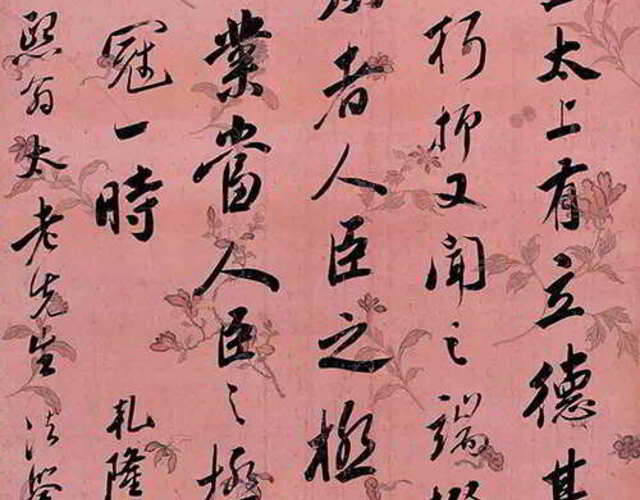 太上有立德其
朽抑又聞之端
者人臣之極
業當人臣之極
冠一時 乾隆
熙翁太老先生法鑒